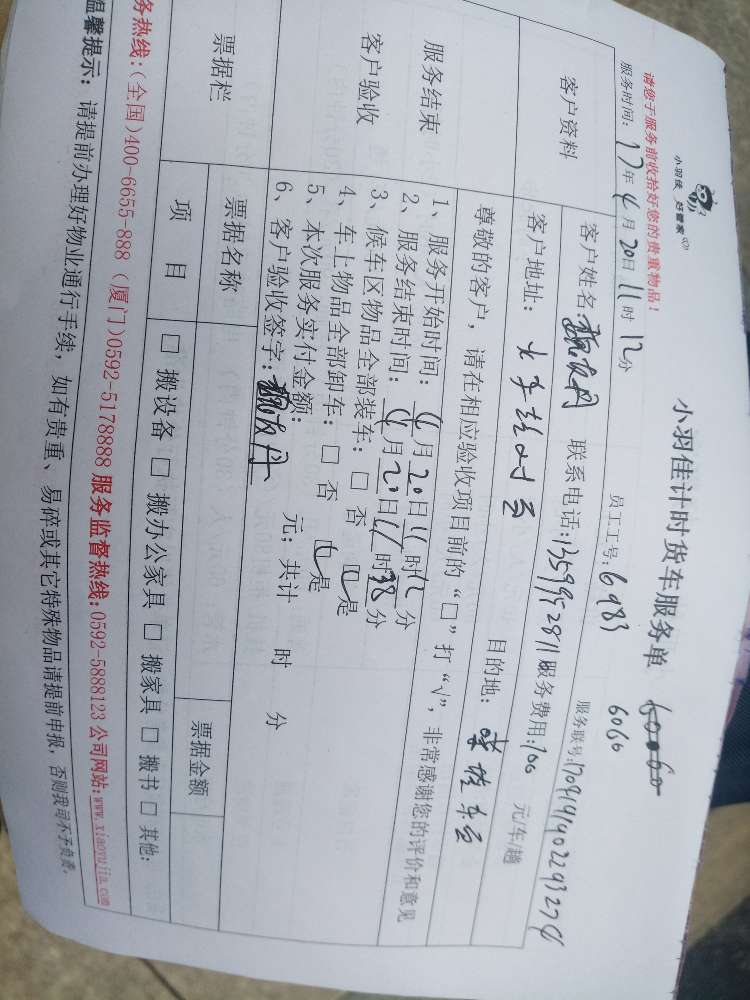 小羽佳 好管家
小羽佳计时货车服务单
6060
6060
请您于服务前收拾好您的贵重物品！
服务时间：17年4月20日11时12分
员工工号：6983
服务联号：
客户资料
客户姓名：
联系电话：13599528911
服务费用：100元/车/趟
客户地址：
目的地：
服务结束
客户验收
尊敬的客户，请在相应验收项目前的“□”打“√”，非常感谢您的评价和意见
1、服务开始时间：4月20日11时12分
2、服务结束时间：4月20日11时38分
3、候车区物品全部装车：□否 □是
4、车上物品全部卸车：□否 □是
5、本次服务实付金额： 元；共计 时 分
6、客户验收签字：
票据栏
票据名称
票据金额
项 目
□ 搬设备 □ 搬办公家具 □ 搬家具 □ 搬书 □ 其他：
务热线：(全国)400-6655-888 (厦门)0592-5178888 服务监督热线：0592-5888123 公司网站：www.xiaoyujia.com
温馨提示：请提前办理好物业通行手续，如有贵重、易碎或其它特殊物品请提前申报，否则我司不予负责。